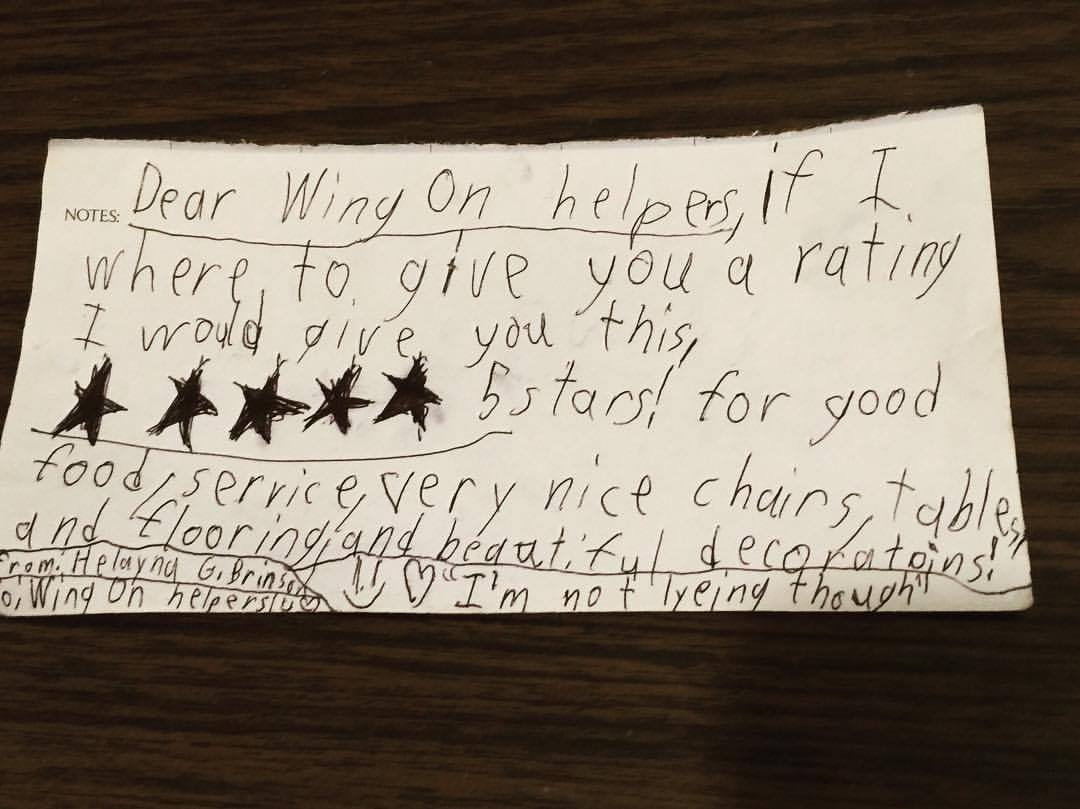 NOTES: Dear Wing On helpers, if I
where to give you a rating
I would give you this,
5 stars! for good
food, service, very nice chairs, tables,
and flooring, and beautiful decoratoins!
From: Helayna G. Brinson
o: Wing On helpers
"I'm not lyeing though"